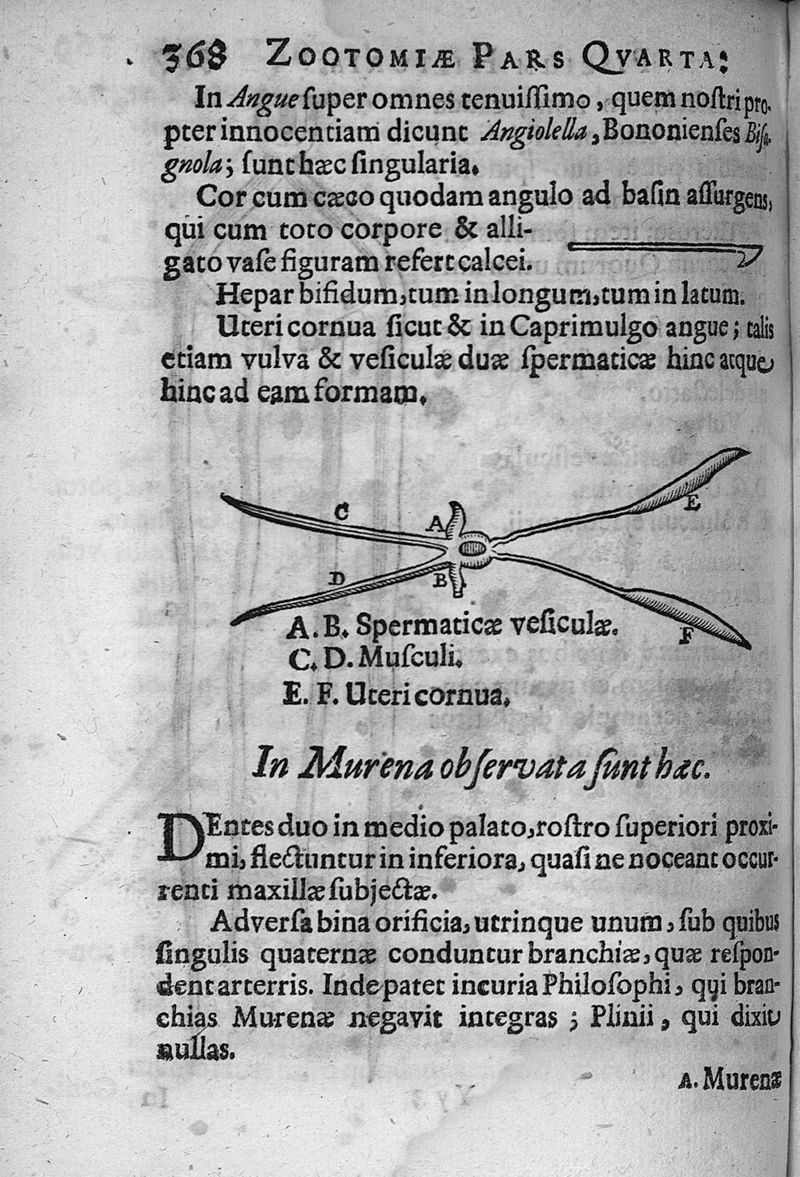 368 ZOOTOMIÆ PARS QVARTA;
In Angue ſuper omnes tenuiſſimo, quem noſtri pro-
pter innocentiam dicunt Angiolella, Bononienſes Biſa-
gnola; ſunt hæc ſingularia.
Cor cum cæco quodam angulo ad baſin aſſurgens,
qui cum toto corpore & alli-
gato vaſe figuram refert calcei.
Hepar bifidum, tum in longum, tum in latum.
Uteri cornua ſicut & in Caprimulgo angue; talis
etiam vulva & veſiculæ duæ ſpermaticæ hinc atque
hinc ad eam formam.
C
A
E
D
B
F
A. B. Spermaticæ veſiculæ.
C. D. Muſculi.
E. F. Uteri cornua.
In Murena obſervata ſunt hæc.
DEntes duo in medio palato, roſtro ſuperiori proxi-
mi, flectuntur in inferiora, quaſi ne noceant occur-
renti maxillæ ſubjectæ.
Adverſa bina orificia, utrinque unum, ſub quibus
ſingulis quaternæ conduntur branchiæ, quæ reſpon-
dent arterris. Inde patet incuria Philoſophi, qui bran-
chias Murenæ negavit integras; Plinii, qui dixit
nullas.
A. Murenæ